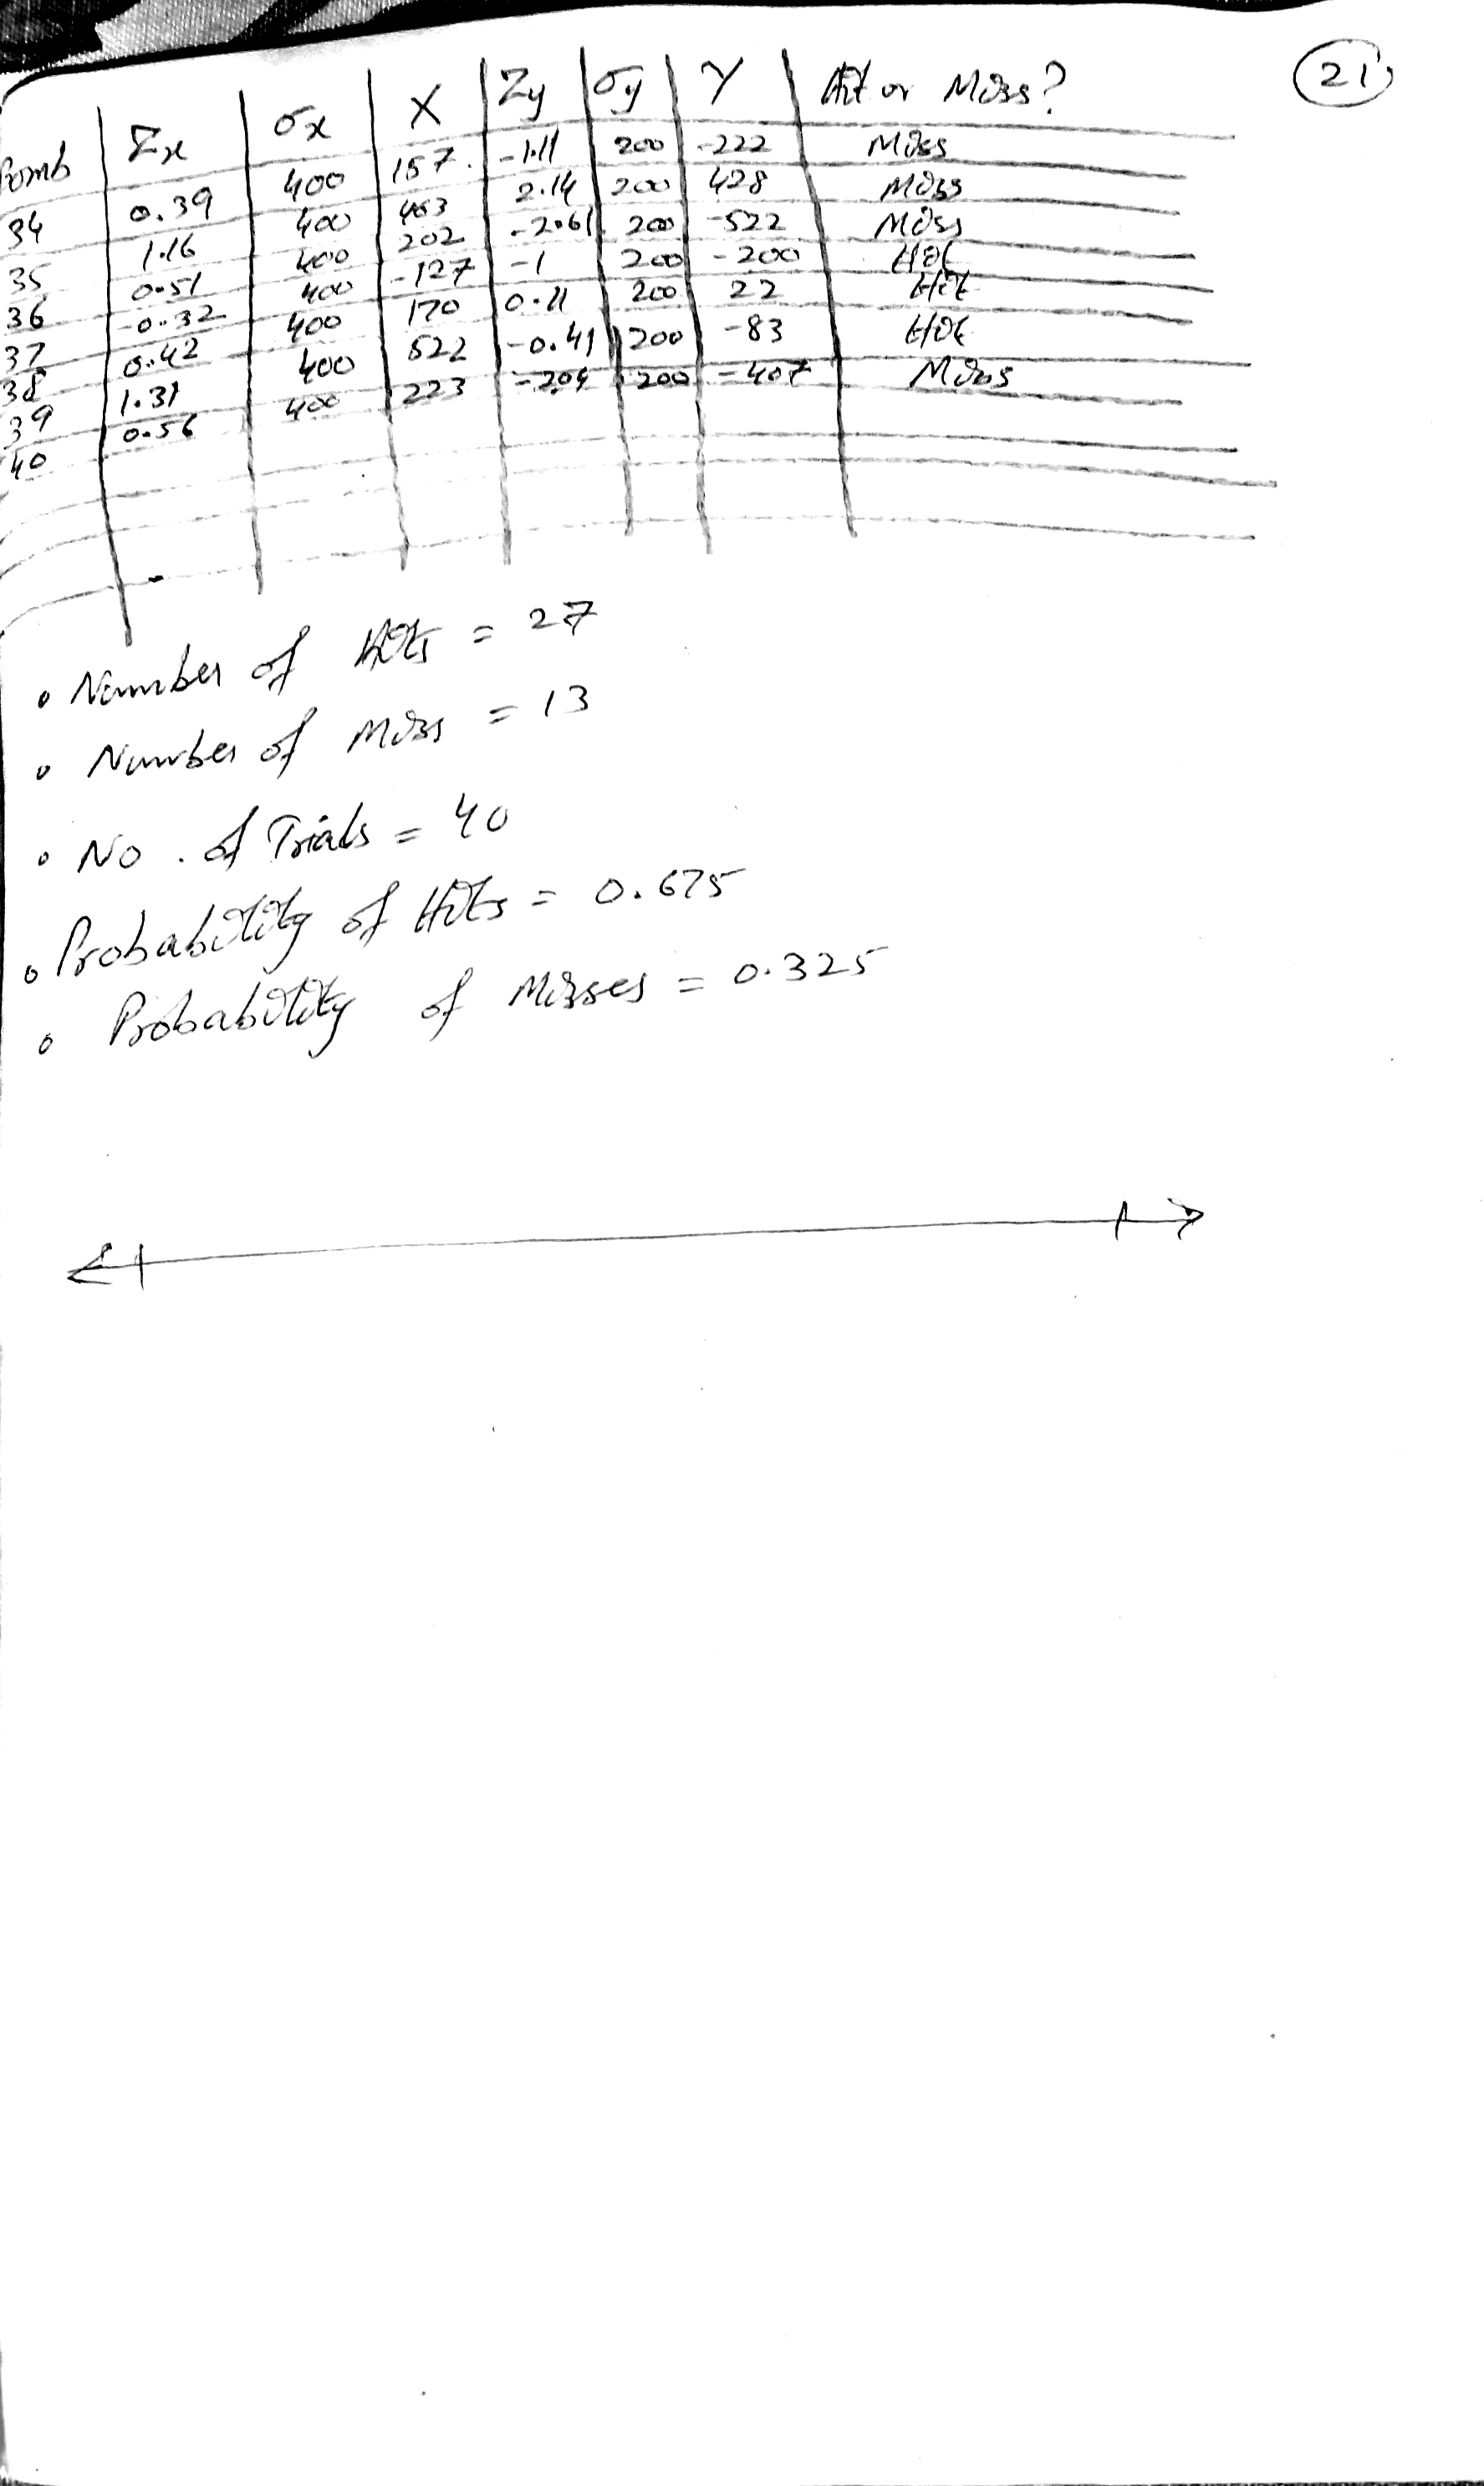 21
Bomb Zx σx X Zy σy Y Hit or Miss?
34 0.39 400 157 -1.11 200 -222 Miss
35 1.16 400 463 2.14 200 428 Miss
36 0.51 400 202 -2.61 200 -522 Miss
37 -0.32 400 -127 -1 200 -200 Hit
38 0.42 400 170 0.11 200 22 Hit
39 1.31 400 522 -0.41 200 -83 Hit
40 0.56 400 223 -204 200 -407 Miss
• Number of Hits = 27
• Number of Miss = 13
• No. of Trials = 40
• Probability of Hits = 0.675
• Probability of Misses = 0.325